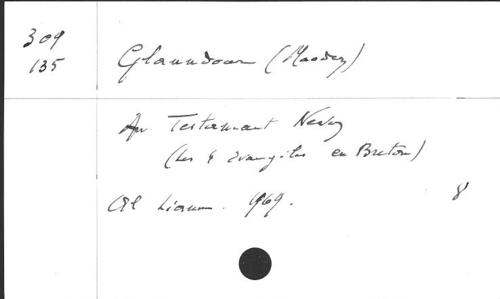 309
135
Glanndour (Maodez)
Ar Testamant Nevez
(Les 4 Evangiles en Breton)
Al Liamm. 1969. 8